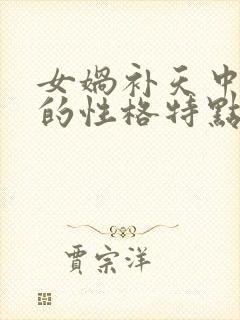 女娲补天中
的性格特點
賈宗洋